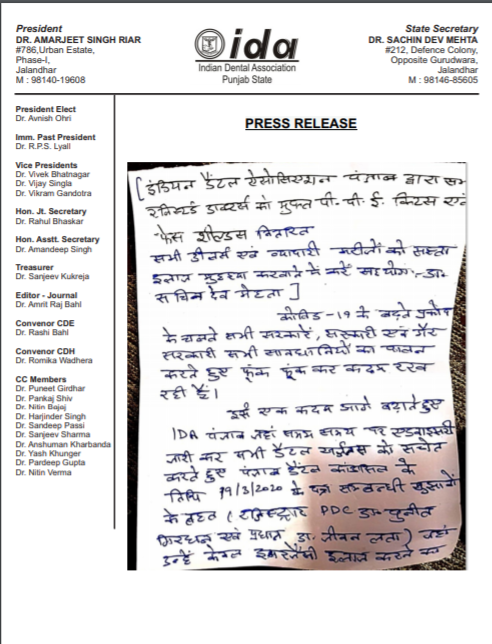 President
DR. AMARJEET SINGH RIAR
#786,Urban Estate,
Phase-I,
Jalandhar
M : 98140-19608
ida
Indian Dental Association
Punjab State
State Secretary
DR. SACHIN DEV MEHTA
#212, Defence Colony,
Opposite Gurudwara,
Jalandhar
M : 98146-85605
President Elect
Dr. Avnish Ohri
Imm. Past President
Dr. R.P.S. Lyall
Vice Presidents
Dr. Vivek Bhatnagar
Dr. Vijay Singla
Dr. Vikram Gandotra
Hon. Jt. Secretary
Dr. Rahul Bhaskar
Hon. Asstt. Secretary
Dr. Amandeep Singh
Treasurer
Dr. Sanjeev Kukreja
Editor - Journal
Dr. Amrit Raj Bahl
Convenor CDE
Dr. Rashi Bahl
Convenor CDH
Dr. Romika Wadhera
CC Members
Dr. Puneet Girdhar
Dr. Pankaj Shiv
Dr. Nitin Bajaj
Dr. Harjinder Singh
Dr. Sandeep Passi
Dr. Sanjeev Sharma
Dr. Anshuman Kharbanda
Dr. Yash Khunger
Dr. Pardeep Gupta
Dr. Nitin Verma
PRESS RELEASE
[इंडियन डैंटल ऐसोसिएशन पंजाब द्वारा सभ
डाक्टर्स को मुफ्त पी. पी. ई. किट्स एवं
फेस शील्डस वितरित
सभी डीलर्स एवं व्यापारी मरीजों को सस्ता
इलाज मुहय्या करवाने में करें सहयोग:-डा॰
सचिन देव मेहता ]
कोविड -19 के बढ़ते प्रकोप
के चलते सभी सरकारें, सरकारी एवं गैर
सरकारी सभी सावधानियों का पालन
करते हुए फूंक फूंक कर कदम रख
रही हैं।
इसी एक कदम आगे बढ़ाते हुए
IDA पंजाब जहां समय समय पर एडवाइजरी
जारी कर सभी डैंटल को सचेत
करते हुए पंजाब डैंटल काउंसिल के
तिथि 19/3/2020 के पत्र सम्बन्धी सुझावों
के तहत (रजिस्ट्रार PDC डा॰ पुनीत
गिरधर एवं प्रधान डा॰ जीवन लता) वहां
उन्हें केवल इमरजैंसी इलाज करने का